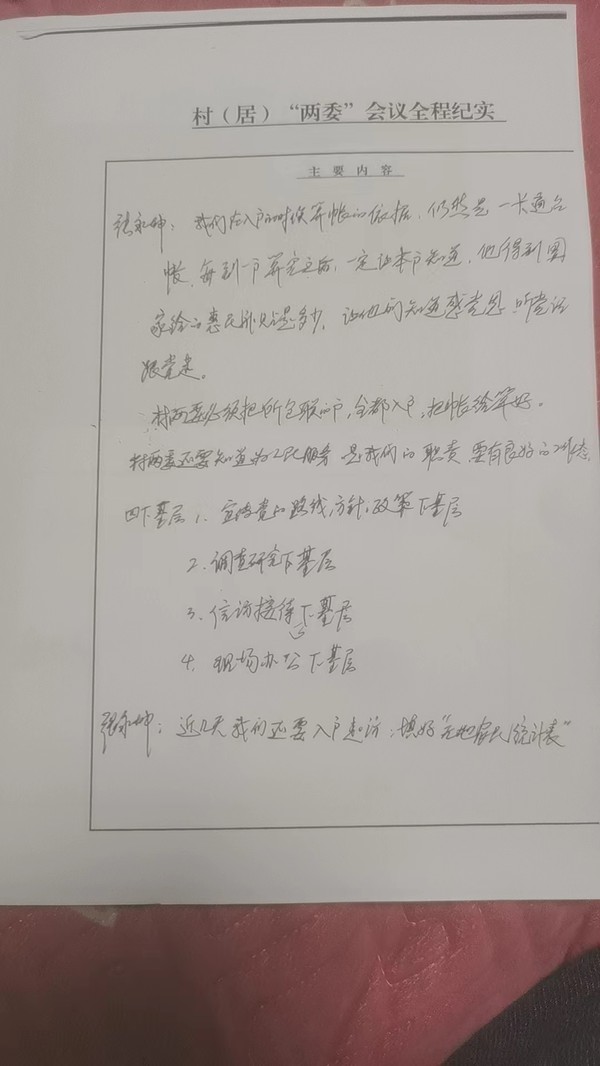 村（居）“两委”会议全程纪实
主要内容
张永坤：我们在入户的时候算帐的依据，仍然是一卡通台
帐，每到一户算完之后，一定让本户知道，他得到国
家给的惠民补贴是多少，让他们知道感党恩 听党话
跟党走。
村两委必须把所包联的户，全都入户，把帐给算好。
村两委还要知道为人民服务 是我们的职责 要有良好的工作态
四下基层 1、宣传党的路线，方针，政策下基层
2、调查研究下基层
3、信访接待下基层
4、现场办公下基层
张永坤：近几天我们还要入户走访，填好“无地农民统计表”